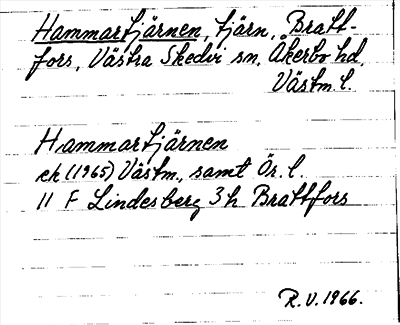 Hammartjärnen, tjärn, Bratt-
fors, Västra Skedvi sn, Åkerbo hd,
Västm. l.
Hammartjärnen
ek (1965) Västm., samt Ör. l.
11 F Lindesberg 3h Brattfors
R.V. 1966.